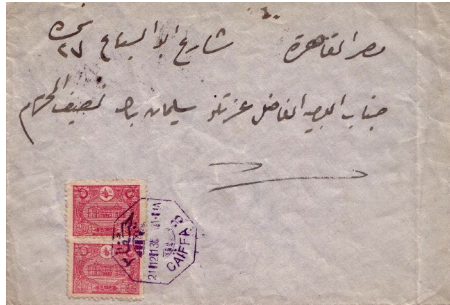 مصر القاهرة شارع ابو السباع نمرة ٢٧
جناب السيد الفاضل عزتلو سليمان بك نصيف المحترم
CAIFFA